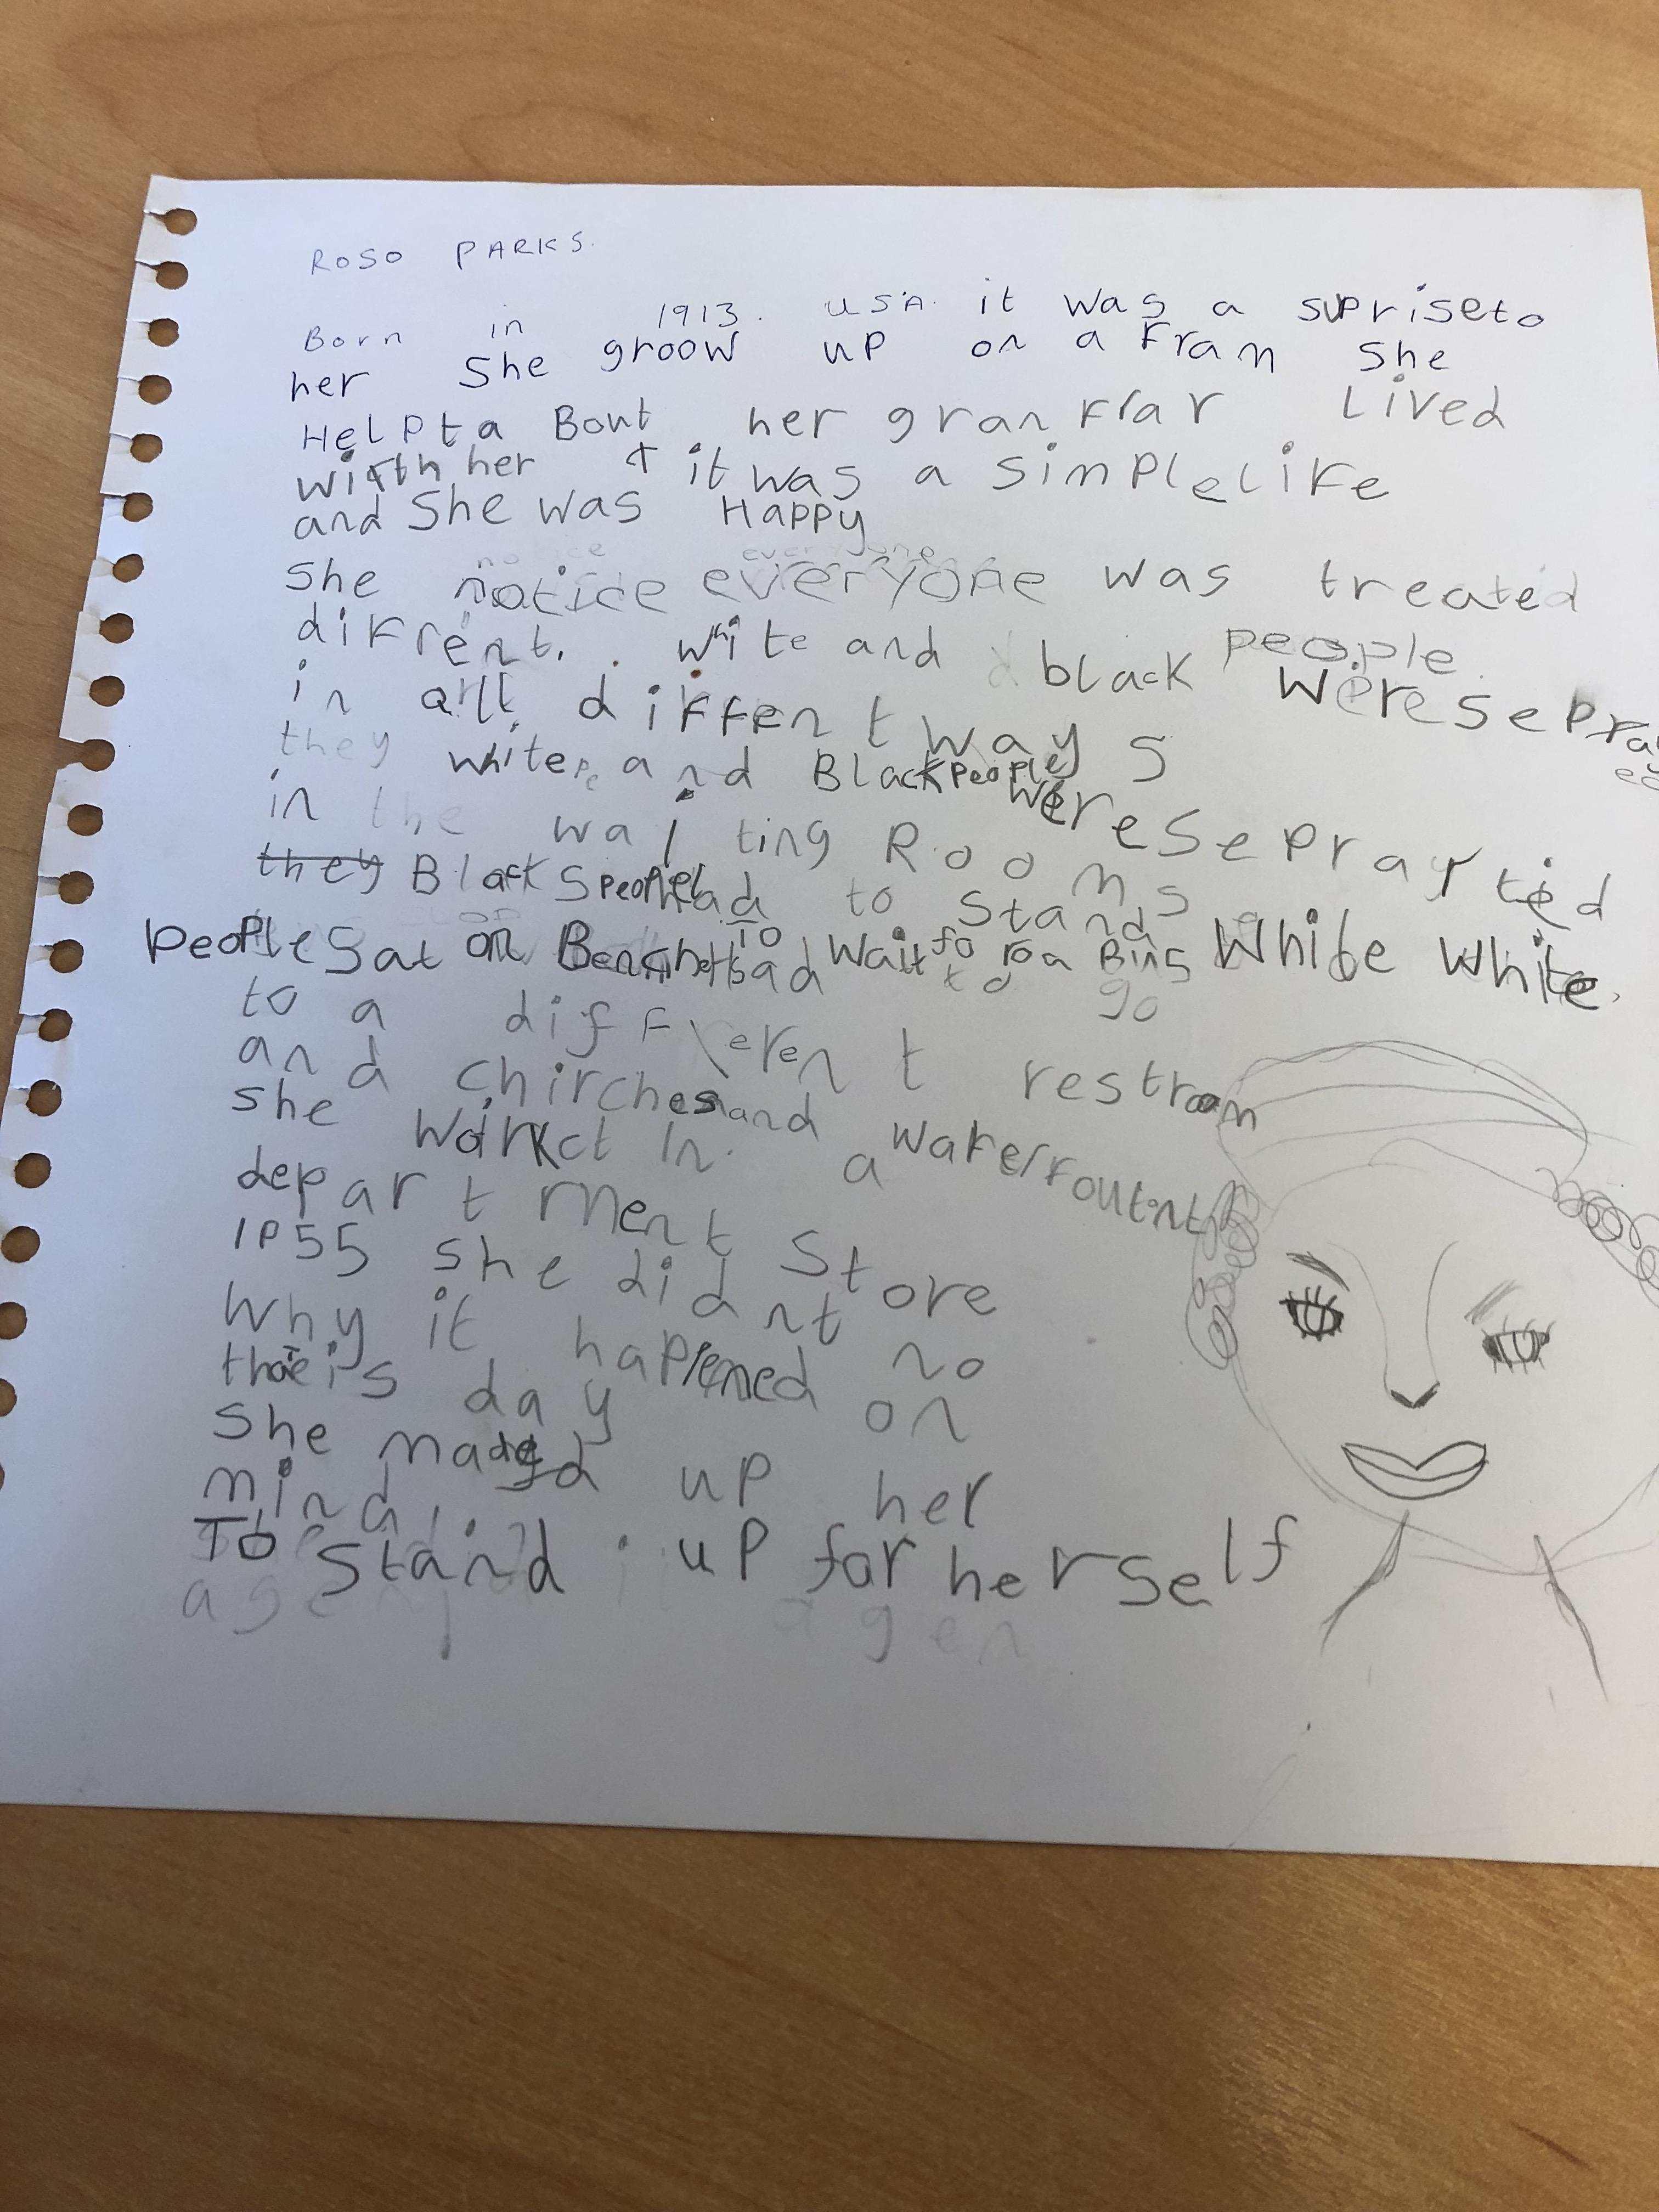 ROSO PARKS.
Born in 1913. USA. it was a supriseto
her She groow up on a Fram She
HelPta Bout her granFrar Lived
with her it was a SimPleLiFe
and She was Happy
notice everyone
She notice everyone was treated
diFrrent. white and black people
in all diFFent ways were sePra
they white and Black people were sePrayted
in the waiting Rooms
they Black people had to stand
PeoPle Sat on Bench had to wait for a Bus White White
to go
to a different restroom
and chirches and
she workct In. a waterFountint
department Store
1P55 she didnt
Why it happened no
this day on
She made up her
mind,
To Stand up for herself
agen